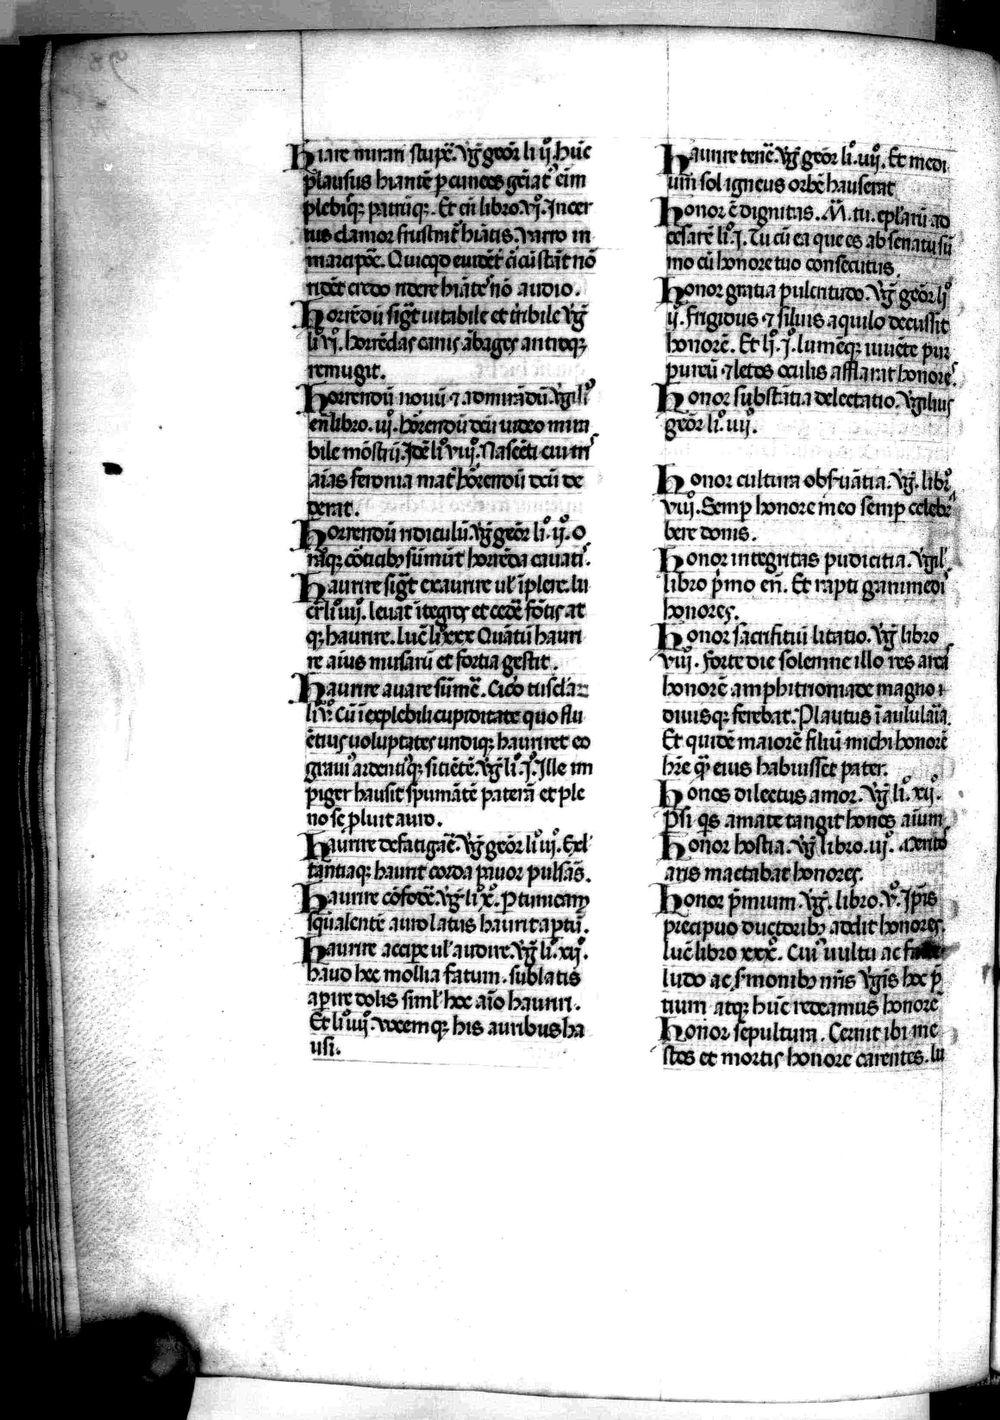 Hiare mirari stupē. Vġ geoř li ij. hūc
plausus hiantē p cuneos gēiat' eim
plebisq; patrūq;. Et eñ libro. vjº. Incer
tus clamor frustrat' hiātis. Varro in
marcipōe. Quicqd euidēt
rident credo ridere hiāte nō audio.
Horrēdū sigt uitabile et tribile vġ
liº vj. horrēdas canis ābages antroq;
remugit.
Horrendū nouū ⁊ admirādū. vġilº
eñ libro. iijº. hōrendū dcū uideo mira
bile mōstrū. Idē liº viijº. Nascēti cui tris
aīas feronia mat' hōrendū dcū de
derat.
Horrendū ridiculū. vġ geoř li. ij. o
raq; cōticibȝ sūmūt horrēda cauatis.
Haurire sigt exaurire ul' īplere. lu
cř liº iiij. leuat ītegros et cedē fōtis at
q; haurire. lucº li xxx Quātū hauri
re aius musarū et fortia gestit.
Haurire auare sūmē. Cicō tuscl'az
li vº. Cū ī explebili cupiditate quo flu
ētius uoluptates undiq; hauriret eo
grauiº ardentiºq; sitiētē. vġ liº. jº. Ille im
piger hausit spumātē paterā et ple
no se pluit auro.
Haurire defatigaē. vġ geoř li iijº. Exl'
tantiaq; haurit corda pauor pulsās.
Haurire cōfodē. vġ liº xº. p tunicam
squalentē auro latus haurit aptū.
Haurire accipe ul' audire. vġ li. xijº.
haud hec mollia fatum. sublatis
apire dolis siml' hec aīo hauriri.
Et liº iiijº. vocemq; his auribus ha
usi.
Haurire tenē. vġ geoř liº. iiijº. Et medi
um sol igneus orbē hauserat
Honor ē dignitas. M. tu. epl'arū ad
cesarē liº. j. Tu cū ea que es ab senatu sū
mo cū honore tuo consecutus.
Honor gratia pulcritudo. vġ geoř liº
ij. frigidus ⁊ siluis aquilo decussit
honorē. Et liº. jº. lumēq; iuuēte pur
pureū ⁊ letos oculis afflarat honores.
Honor substātia delectatio. vġilius
geoř li. iiijº.
Honor cultura obs̄uātia. vġ. libro
viijº. Semp honore meo semp celebra
bere donis.
Honor integritas pudicitia. vġil'
libro p̄mo eñ. Et rapti ganimedis
honores.
Honor sacrifitiū litatio. vġ libro
viijº. forte die solemne illo rex arcas
honorē amphitrioniade magno ⁊
diuisq; ferebat. Plautus ī aulularia.
Et quidē maiorē filiū michi honorē
hr̄e q̄ eius habuisset pater.
Honos dilectus amor. vġ li. xijº.
Psi qs amate tangit honos aīum
Honor hostia. vġ libro. iijº. Merito
aris mactabat honores.
Honor p̄mium. vġ. libro. vº. Ip̄is
precipuo ductoribȝ addit honores.
lucº libro xxxº. Cuiº uultu ac
ludo ac s̄monibȝ nr̄is vġis hoc p̄
tium atq; hūc redeamus honorē
Honor sepultura. Cernit ibi me
stos et mortis honore carentes. lu